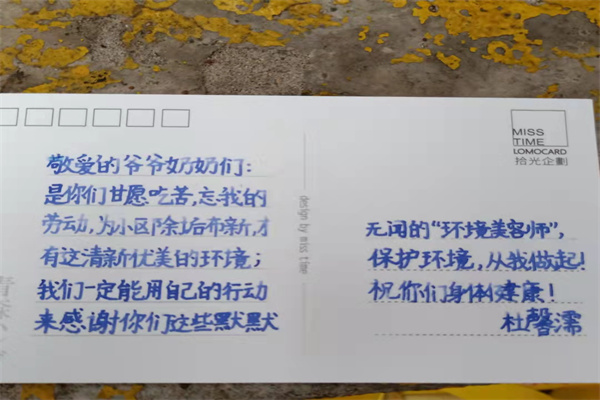 敬爱的爷爷奶奶们:
是你们甘愿吃苦,忘我的
劳动,为小区除垢布新,才
有这清新优美的环境;
我们一定能用自己的行动
来感谢你们这些默默
design by miss time
MISS
TIME
LOMOCARD
拾光企劃
无闻的“环境美容师”,
保护环境,从我做起!
祝你们身体健康!
杜馨濡